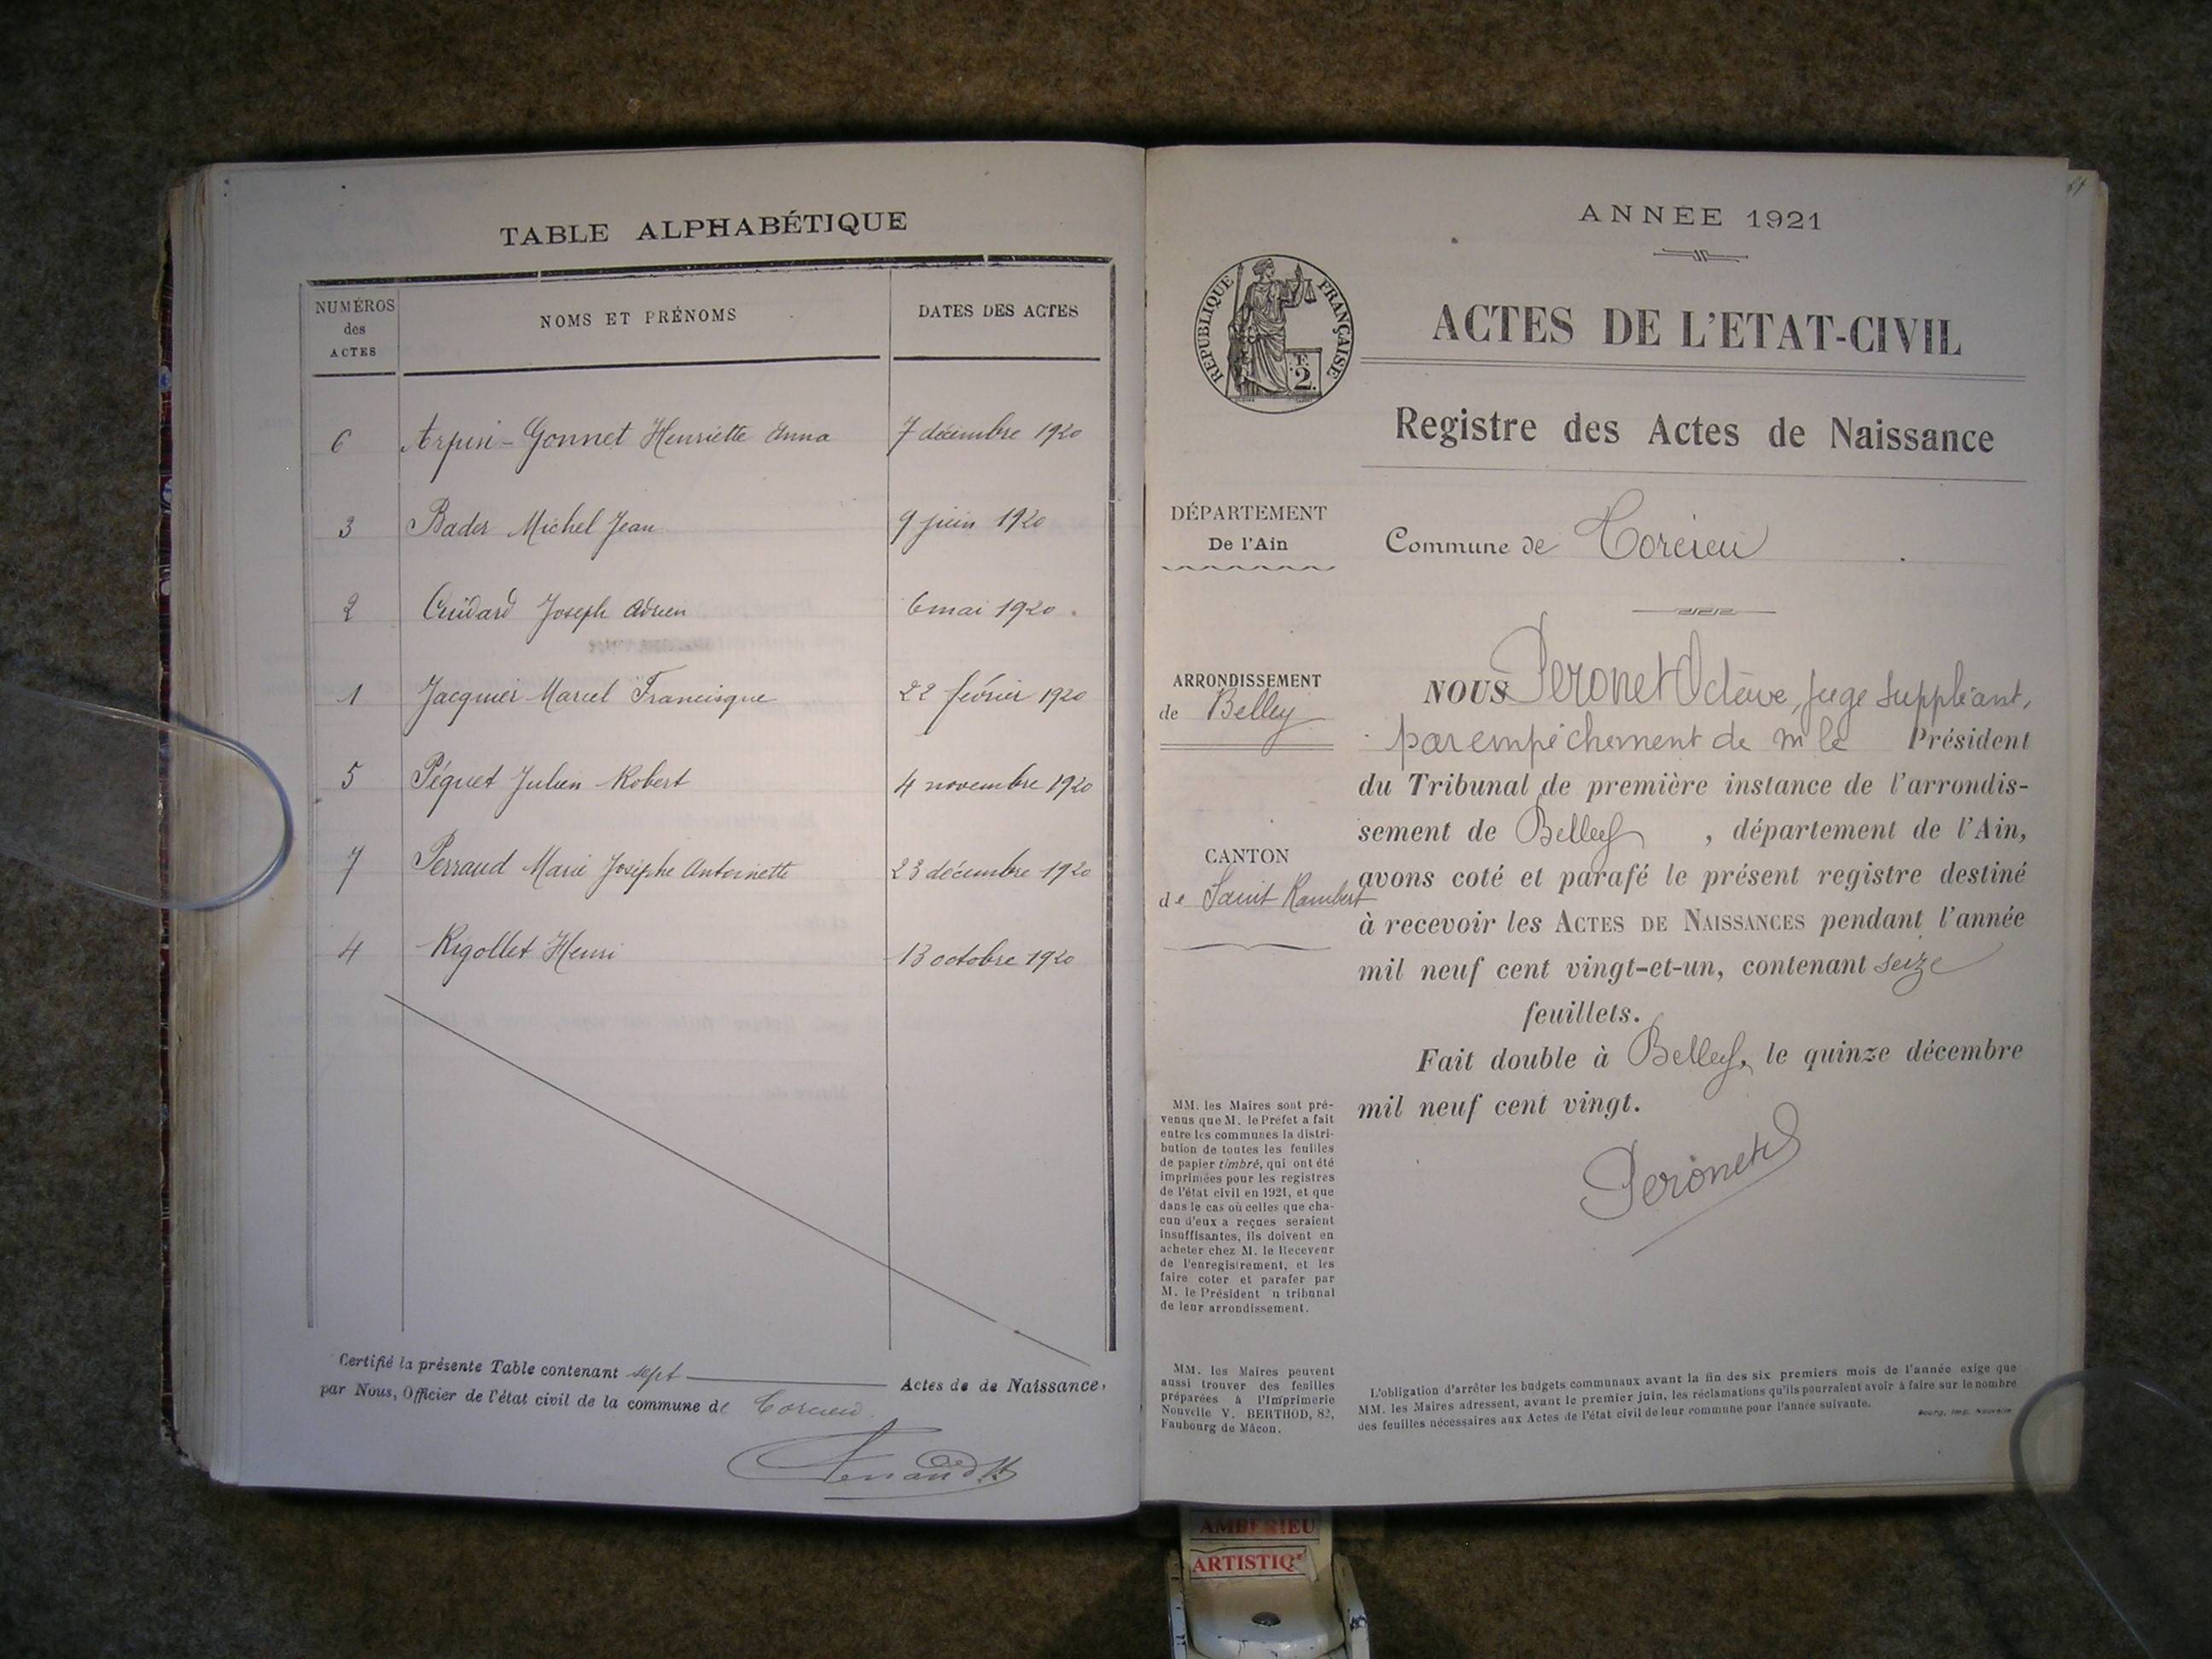 TABLE ALPHABÉTIQUE
NUMÉROS des ACTES
NOMS ET PRÉNOMS
DATES DES ACTES
6 Arpin-Gonnet Henriette Anna 7 décembre 1920
3 Bader Michel Jean 9 juin 1920
2 Joseph Adrien 6 mai 1920
1 Jacquier Marcel Francisque 22 février 1920
5 Péquet Julien Robert 4 novembre 1920
7 Perraud Marie Josèphe Antoinette 23 décembre 1920
4 Rigollet Henri 13 octobre 1920
Certifié la présente Table contenant sept Actes de de Naissance,
par Nous, Officier de l'état civil de la commune de Torcieu
ANNÉE 1921
RÉPUBLIQUE FRANÇAISE
2
ACTES DE L'ETAT-CIVIL
Registre des Actes de Naissance
DÉPARTEMENT
De l'Ain
Commune de Torcieu
ARRONDISSEMENT
de Belley
CANTON
de Saint Rambert
NOUS Peronet Octave, juge suppléant,
par empêchement de M le Président
du Tribunal de première instance de l'arrondis-
sement de Belley, département de l'Ain,
avons coté et parafé le présent registre destiné
à recevoir les ACTES DE NAISSANCES pendant l'année
mil neuf cent vingt-et-un, contenant seize
feuillets.
Fait double à Belley, le quinze décembre
mil neuf cent vingt.
Peronet
MM. les Maires sont pré-
venus que M. le Préfet a fait
entre les communes la distri-
bution de toutes les feuilles
de papier timbré, qui ont été
imprimées pour les registres
de l'état civil en 1921, et que
dans le cas où celles que cha-
cun d'eux a reçues seraient
insuffisantes, ils doivent en
acheter chez M. le Receveur
de l'enregistrement, et les
faire coter et parafer par
M. le Président u tribunal
de leur arrondissement.
MM. les Maires peuvent
aussi trouver des feuilles
préparées à l'Imprimerie
Nouvelle V. BERTHOD, 82,
Faubourg de Mâcon.
L'obligation d'arrêter les budgets communaux avant la fin des six premiers mois de l'année exige que
MM. les Maires adressent, avant le premier juin, les réclamations qu'ils pourraient avoir à faire sur le nombre
des feuilles nécessaires aux Actes de l'état civil de leur commune pour l'année suivante.
Bourg, Imp. Nouvelle
AMBERIEU
ARTISTIQ